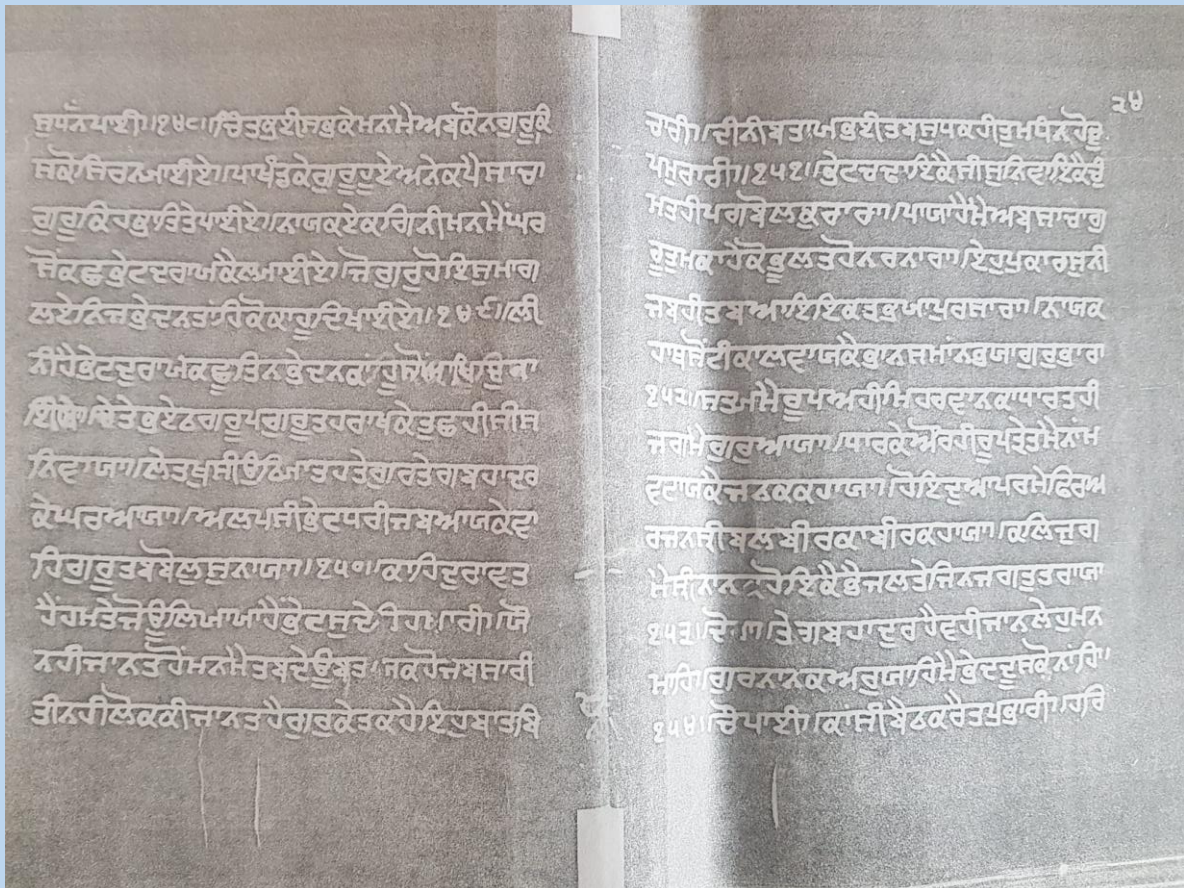 ਸੁਧਨਪਾਈ॥੧੪੮॥ਚਿੰਤਭਈਸਭਕੇਮਨਮੈਅਬਕੌਨਗੁਰੂਕਿ
ਸਕੋਸਿਰਨਿਆਈਏ॥ਪਾਪੰਡਕੇਗੁਰੂਹੂਏਅਨੇਕਪੈਸਾਚਾ
ਗੁਰੂਕਿਹਭਾਤਿਤੇਪਾਈਏ॥ਨਾਯਕਏਕਗਿਨੀਮਨਮੈਂਘਰ
ਜੋਕਛੁਭੇਟਦਰਾਖਕੈਲਆਈਏ॥ਜੋਗੁਰੁਹੋਇਸੁਮਾਗ
ਲਏਨਿਜਭੇਦਨਤਾਂਹਿਕੋਕਾਹੂਦਿਖਾਈਏ॥੧੪੯॥ਲੀ
ਨੀਹੈਭੇਟਦੁਰਾਖਕਛੂਤਿਨਭੇਦਨਕਾਂਹੂਸੋਂ
ਚੇਤੇਭਏਨਗਰੂਪਗੁਰੂਤਹਰਾਖਕੇਤੁਛਹੀਸੀਸ
ਨਿਵਾਯਾ॥ਲੇਤਖੁਸੀਉਠਿਆਤਹਤੇਗੁਰਤੇਗਬਹਾਦਰ
ਕੇਘਰਆਯਾ॥ਅਲਪਸੀਭੇਟਧਰੀਜਬਆਯਕੇਵਾ
ਹਿਗੁਰੂਤਬਬੋਲਸੁਨਾਯਾ॥੧੫੦॥ਕਾਹਿਦੁਰਾਵਤ
ਹੈਂਹਮਤੇਜੋਊਲਿਖਾਖਾਹੈਭੇਟਸੁਦੇਹਿਹਮਾਰੀ॥ਯੌ
ਨਹੀਜਾਨਤਹੋਂਮਨਮੈਤਬਦੇਊਬਤਾਜਕਹੋਜਬਸਾਰੀ
ਤੀਨਹੀਲੋਕਕੀਜਾਨਤਹੈਗੁਰੁਕੇਤਕਹੈਇਹੁਬਾਤਬਿ
੨੪
ਚਾਰੀ॥ਦੀਨੀਬਤਾਖਭਈਤਬਸੁਧਕਹੀਤੁਮਧੰਨਹੋਏ
ਪਸੁਚਾਰੀ॥੧੫੧॥ਭੇਟਚਢਾਇਕੈਸੀਸੁਨਿਵਾਇਕੈਚੂੰ
ਮਤਹੀਪਗਬੋਲਕੁਚਾਰਾ॥ਪਾਯਾਹੈਮੈਅਬਸਾਚਾਗੁ
ਰੂਤੁਮਕਾਹੇਕੋਭੂਲਤਹੋਨਰਨਾਰਾ॥ਏਹੁਪੁਕਾਰਸੁਨੀ
ਜਬਹੀਤਬਆਇਇਕਤਭਖਾਪੁਰਸਾਰਾ॥ਨਾਯਕ
ਹਾਥਸੋਂਟੀਕਾਲਵਾਯਕੈਭਾਨਸਮਾਂਨਭਯਾਗੁਰੁਭਾਰਾ
੧੫੨॥ਸਤਮੈਰੂਪਅਹੀਮਿਹਰਵਾਨਕਾਧਾਰਤਹੀ
ਜਗਮੈਗੁਰੁਆਯਾ॥ਧਾਰਕੇਔਰਹੀਰੂਪਤ੍ਰੇਤਮੈਨਾਂਮ
ਵਟਾਯਕੈਜਨਕਕਹਾਯਾ॥ਹੋਇਦੁਆਪਰਮੇਫਿਰਅ
ਰਜਨਸੀਬਲਬੀਰਕਾਬੀਰਕਹਾਯਾ॥ਕਲਿਜੁਗ
ਮੈਸੀਨਾਨਕਹੋਇਕੈਭੈਜਲਤੇਜਿਨਜਗਤੁਤਰਾਯਾ
੧੫੩॥ਦੋਹਰਾ॥ਤੇਗਬਹਾਦੁਰਹੈਵਹੀਜਾਨਲੇਹੁਮਨ
ਮਾਹਿ॥ਗੁਰਨਾਨਕਅਰੁਯਾਹਿਮੈਭੇਦਦੂਸਕੋਨਾਂਹਿ॥
੧੫੪॥ਚੋਪਾਈ॥ਕਾਂਸੀਬੈਨਕਰੈਤਪੁਭਾਰੀ॥ਹਰਿ